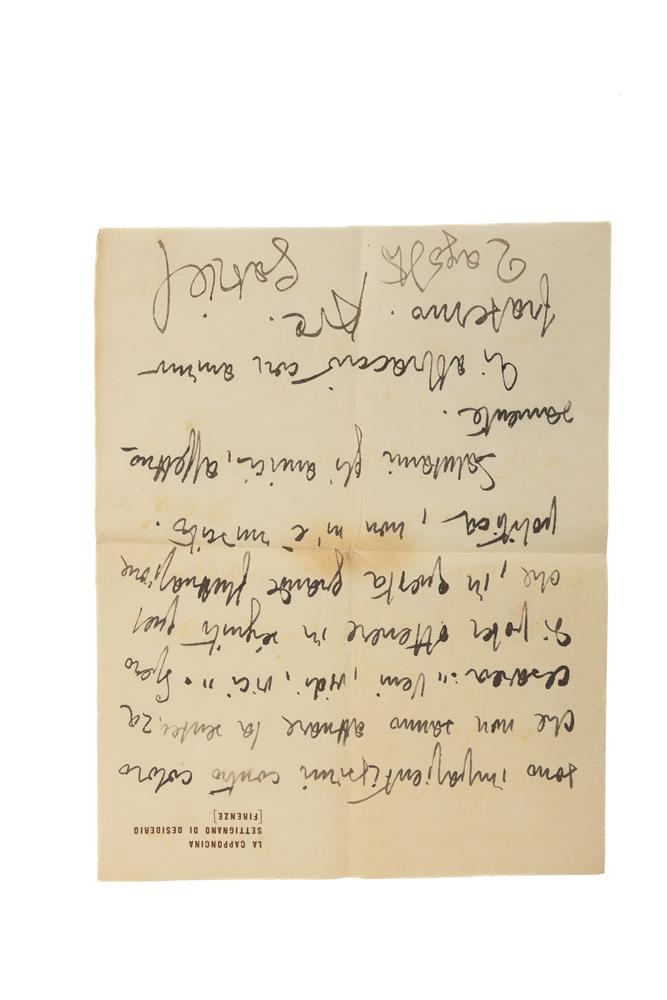 LA CAPPONCINA
SETTIGNANO DI DESIDERIO
[FIRENZE]
sono impazientissimi contro coloro
che non sanno attuare la sentenza
cesarea: "Veni, vidi, vici". Spero
di poter ottenere in séguito quel
che, in questa grande fluttuazione
politica, non m'è riuscito.
Salutami gli amici, affettuo-
samente.
Ti abbraccio con animo
fraterno. Ave.
Gabriel
2 agosto